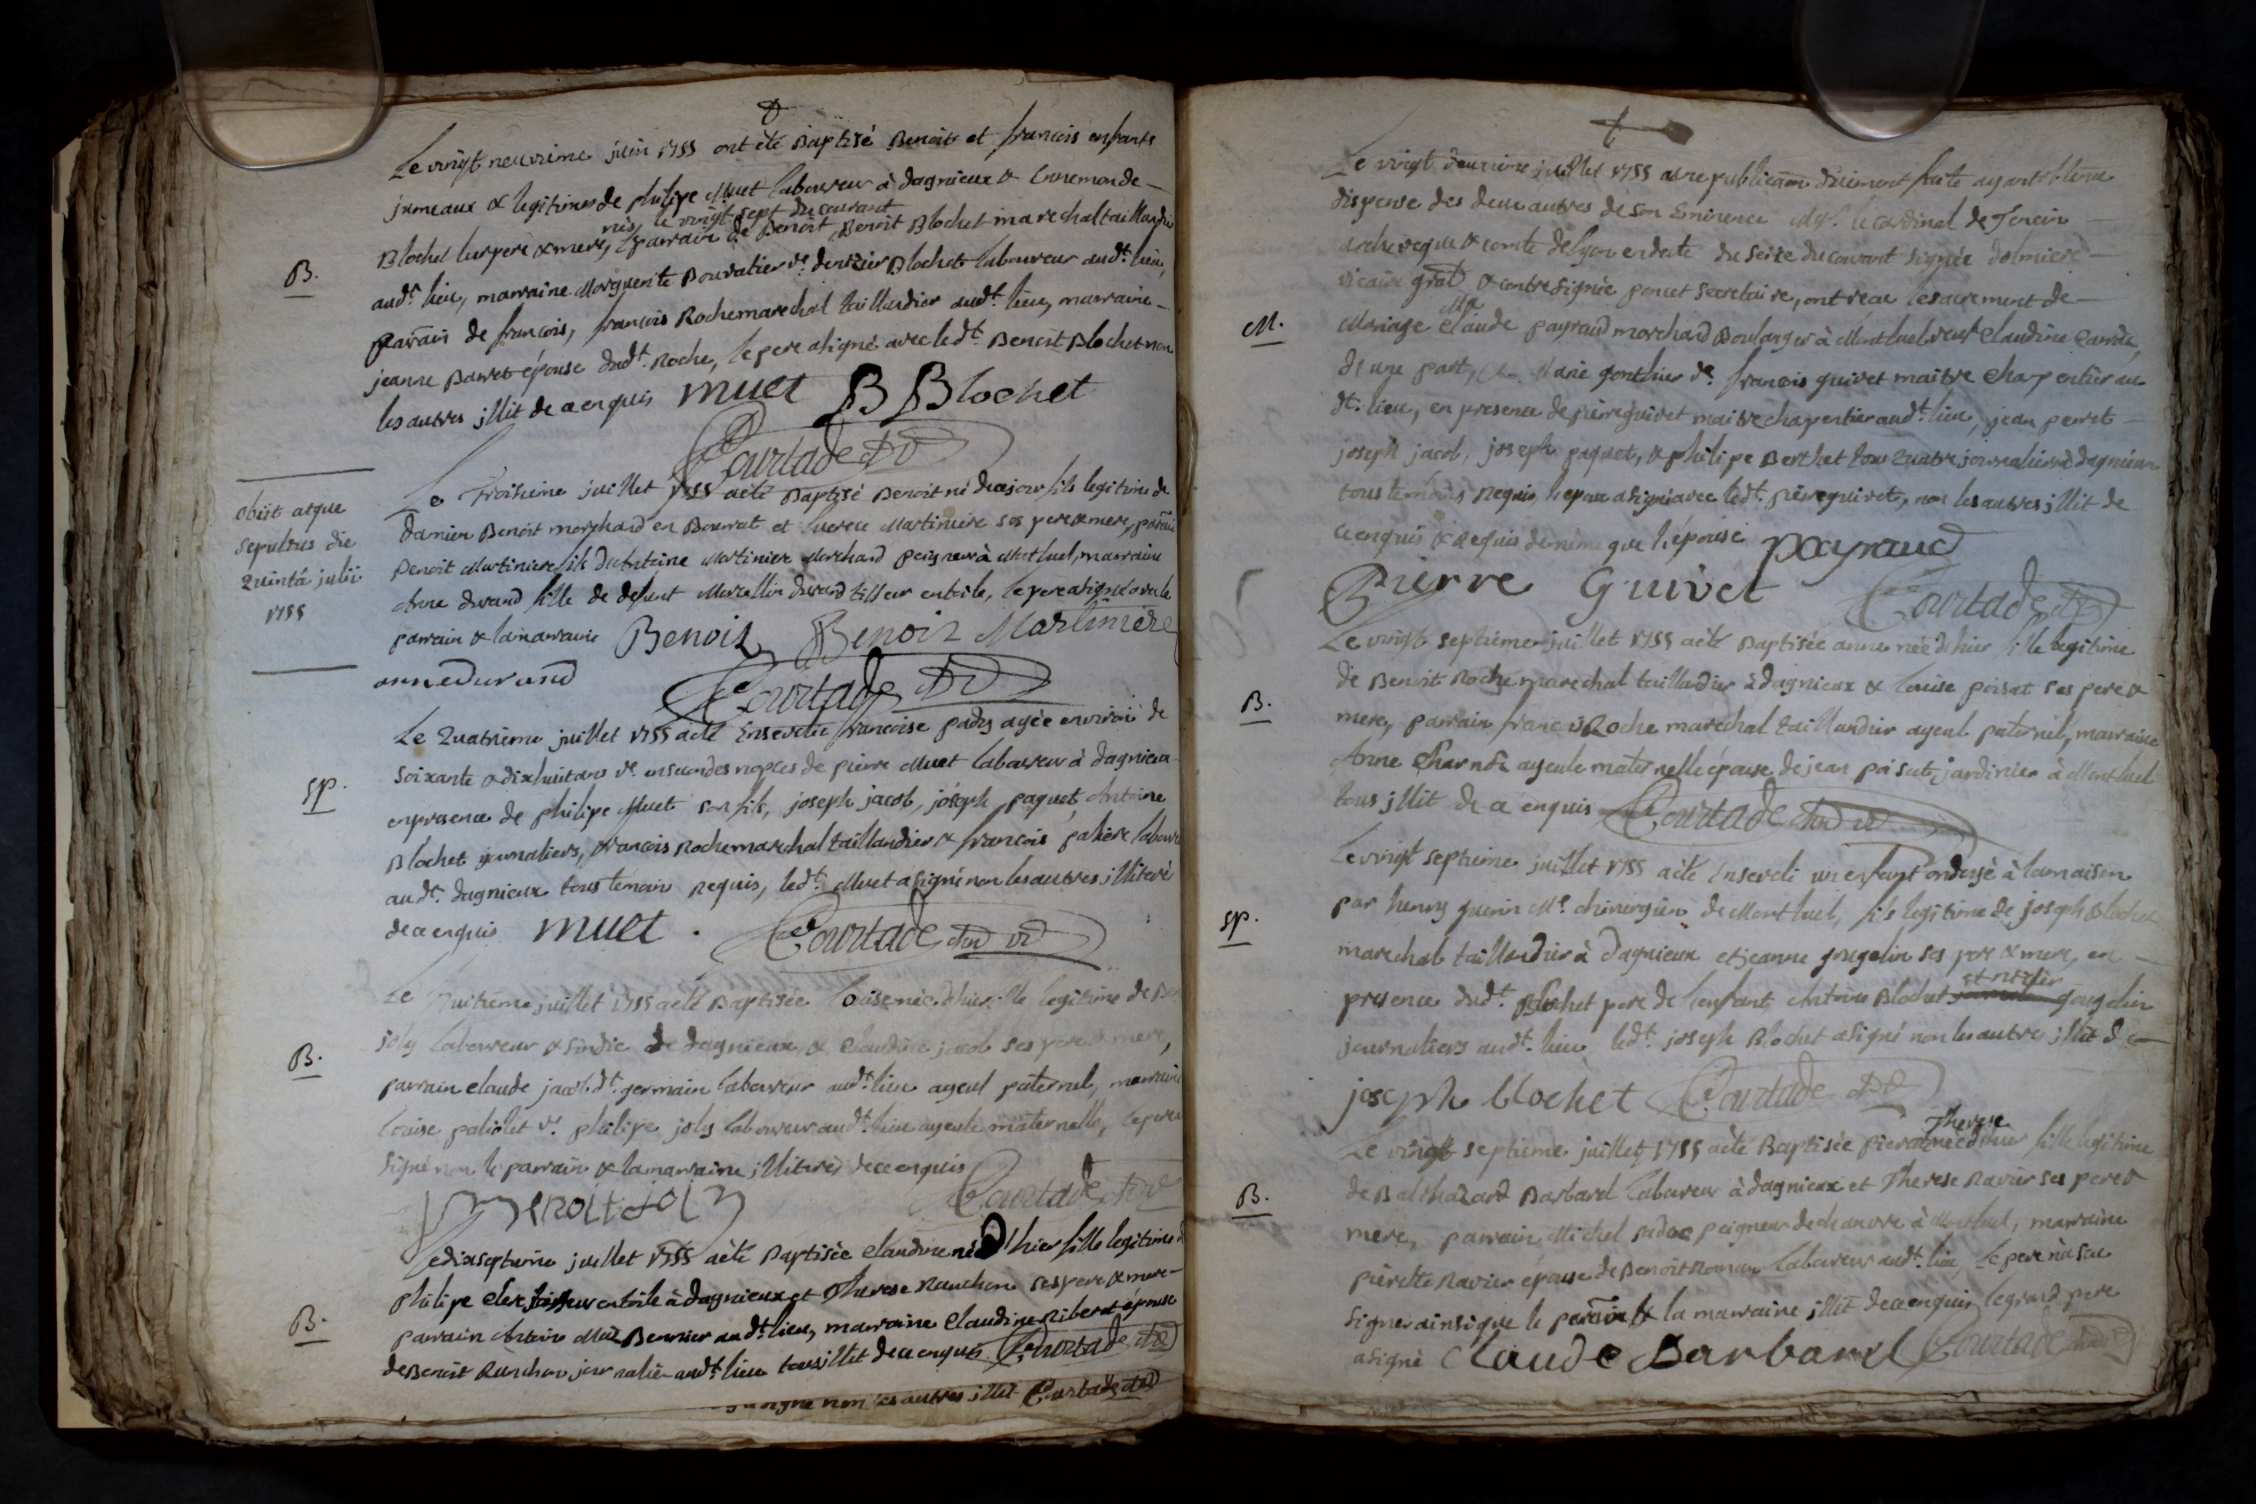 Le vingt neuvieme juin 1755 ont été Baptisé Benoit et françois enfants
jumeaux & legitimes de philipe Muet laboureur à dagnieux & Ennemonde
nés le vingt sept du courant
Blochet leurs pere & mere, parrain de Benoit, Benoit Blochet marechal taillandier
B.
audt. lieu, marraine Marguerite Bouvatier ve. denizier Blochet laboureur audt. lieu,
parrain de françois, françois Roche marechal taillandier audt. lieu, marraine
jeanne Barret épouse dudt. Roche, le pere a signé avec ledt. Benoit Blochet non
les autres illit de ce enquis muet B Blochet
Courtade
obiit atque
sepultus die
quintâ julii
1755
Le troisieme juillet 1755 a été Baptisé Benoit né de ce jour fils legitime de
damien Benoit marchand en Bourrat et lucrece Martiniere ses pere & mere, parrain
Benoit Martiniere fils d'Antoine Martinier Marchand peigneur à Montluel, marraine
Anne durand fille de defunt Marcellin durand tisseur en toile, le pere a signé avec le
parrain & la marraine Benoit Benoit Martiniere
anne durand
Courtade
Le quatrieme juillet 1755 a été Ensevelie francoise padey agée environ de
soixante & dix huit ans ve. en secondes nopces de pierre Muet laboureur à dagnieux
sp.
en presence de philipe Muet son fils, joseph jacob, joseph paquet, Antoine
Blochet journaliers, françois Roche marechal taillandier & françois paliere laboureur
audt. dagnieux tous temoins requis, ledt. Muet a signé non les autres illiterés
de ce enquis muet . Courtade
Le huitieme juillet 1755 a été Baptisée Louise née d'hier fille legitime de
joly laboureur & sindic de dagnieux & Claudine jacob ses pere & mere,
B.
parrain claude jacob dt. germain laboureur audt. lieu ayeul paternel, marraine
Louise paliolet ve. philipe joly laboureur audt. lieu ayeule maternelle, le pere
signé non le parrain & la marraine illiterés de ce enquis
Benoit joly Courtade
Le dix septieme juillet 1755 a été Baptisée Claudine née d'hier fille legitime de
philipe clerc tisseur en toile à Dagnieux et Therese Ranchon ses pere & mere
B.
parrain Antoine Mus Bennier audt. lieu, marraine Claudine Riberat épouse
de Benoit Ranchon journalier audt. lieu tous illit de ce enquis Courtade
a signé non les autres illit Courtade
Le vingt deuxieme juillet 1755 apre publication duement faite ayant obtenu
dispense des deux autres de son Eminence Mgr. le cardinal de Tencin
archeveque & comte de lyon en date du seize du courant signée dolmiere
vicaire gral & contresignée poncet secretaire, ont recu le sacrement de
M.
Mariage Mre. claude payraud marchand Boulanger à Montluel veuf Claudine Carrde,
d'une part, & Marie gonthier ve. françois guivet maitre charpentier au
dt. lieu, en presence de pierre guivet maitre charpentier audt. lieu, jean perret
joseph jacob, joseph paquet, & philipe Berthet tous quatre journaliers à dagnieux
tous temoins requis, l'epoux a signé avec ledt. pierre guivet, non les autres illit de
ce enquis & requis de meme que l'épouse payraud
Pierre Guivet Courtade
Le vingt septieme juillet 1755 a été Baptisée anne née d'hier fille legitime
de Benoit Roche marechal taillandier à dagnieux & Louise poisat ses pere &
B.
mere, parrain francois Roche marechal taillandier ayeul paternel, marraine
Anne Charnd ayeule maternelle épouse de jean poisat, jardinier à Montluel
tous illit de ce enquis Courtade
Le vingt septieme juillet 1755 a été Enseveli un enfant ondoyé à la maison
par henry guerin Me. chirurgien de Montluel, fils legitime de joseph Blochet
sp.
marechal taillandier à dagnieux et jeanne gougelin ses pere & mere, en
presence dudt. Blochet pere de l'enfant, Antoine Blochet gougelin
journaliers audt. lieu ledt. joseph Blochet a signé non les autres illit de ce
joseph blochet Courtade
Therese
Le vingt septieme juillet 1755 a été Baptisée pierrette née d'hier fille legitime
de Balthazard Barbarel laboureur à dagnieux et Therese Ravier ses pere &
B.
mere, parrain Michel sadoc peigneur de chanvre à Montluel, marraine
pierrette Ravier épouse de Benoit Roman laboureur audt. lieu, le pere n'a scu
signer ainsi que le parrain & la marraine illit de ce enquis le grand pere
a signé Claude Barbarel Courtade